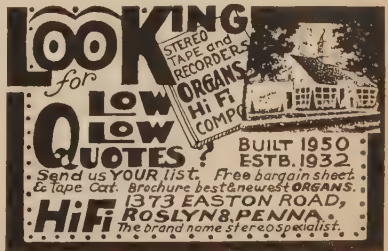 LOOKING
for
STEREO
TAPE and
RECORDERS
ORGANS
Hi Fi
COMPO
LOW
LOW
QUOTES?
BUILT 1950
ESTB. 1932
Send us YOUR list. Free bargain sheet
& Tape Cat. Brochure best & newest ORGANS.
HiFi
1373 EASTON ROAD,
ROSLYN 8, PENNA.
The brand name stereo specialist.